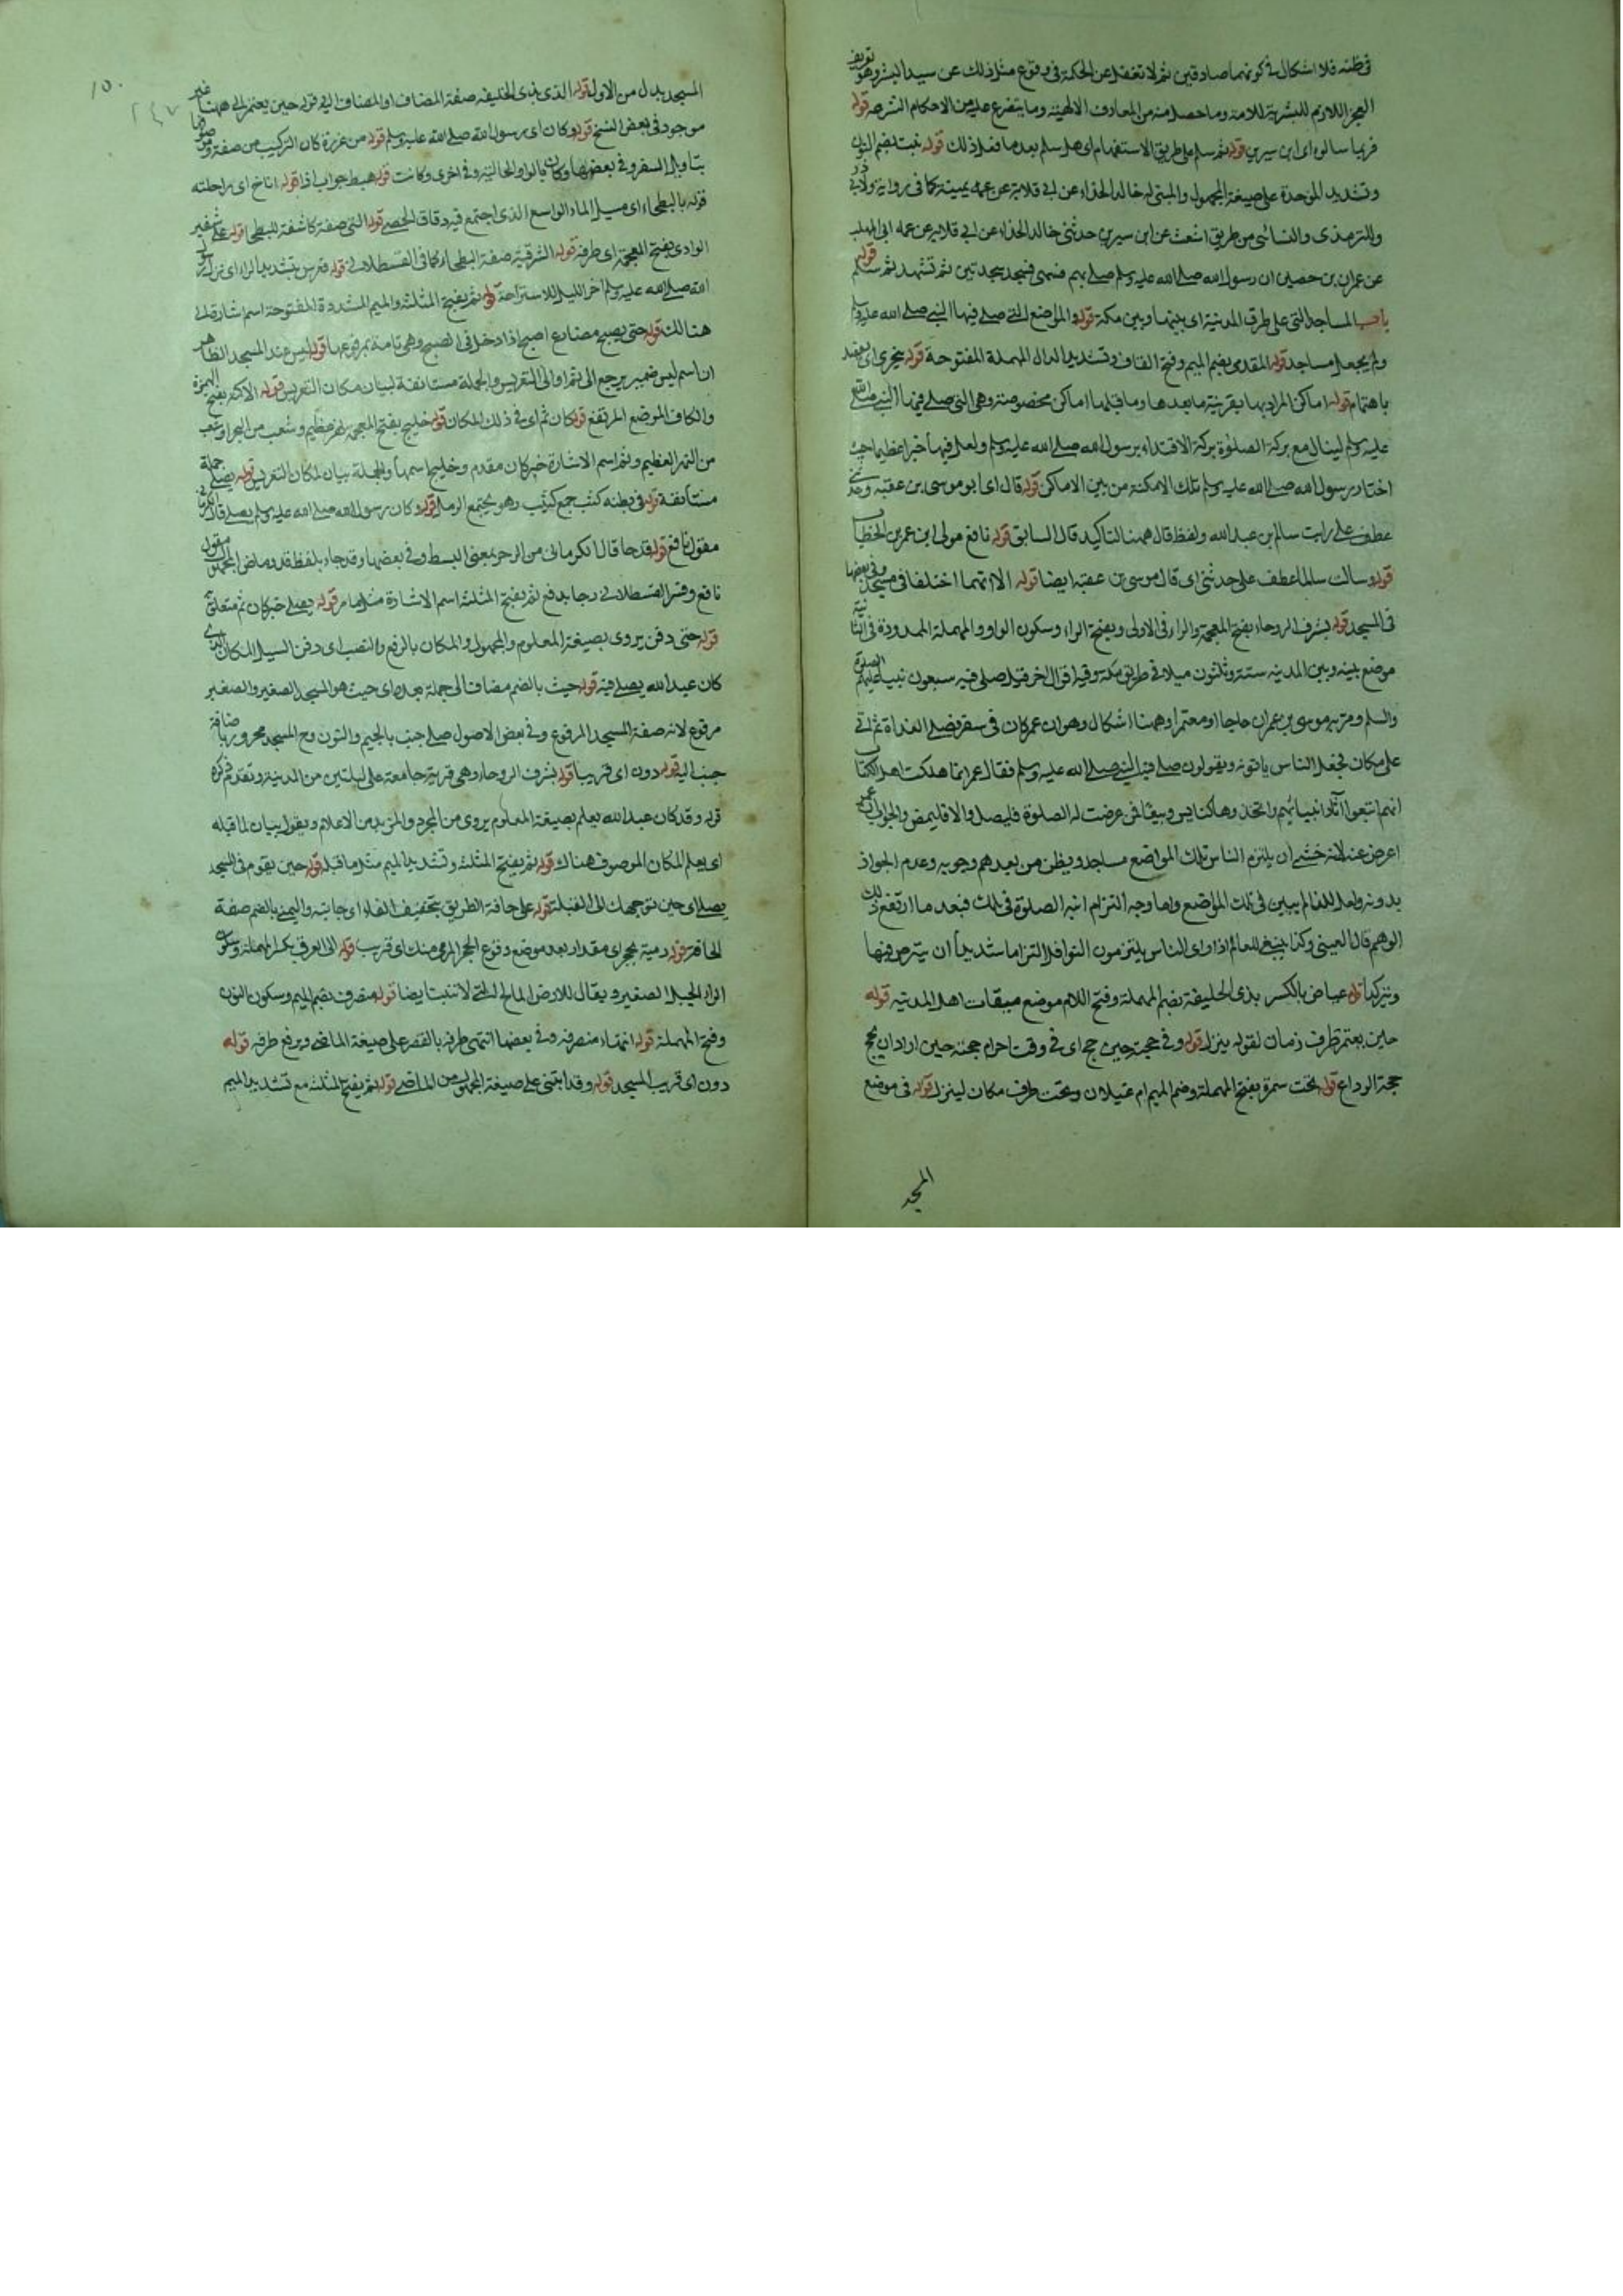 فى ظنه فلا اشكال فى كونهما صادقين ثم لا تغفل عن الحكمة فى وقوع مثل ذلك عن سيد البشر وهو تعريف
العجز اللازم للبشرية للامة وما حصل منه من المعارف الالهية وما يتفرع عليه من الاحكام الشرعية قوله
فربما سالوه اى ابن سيرين قوله ثم سلم على طريق الاستفهام اى هل سلم بعد ما فعل ذلك قوله نبئت بضم النون
وتشديد الموحدة على صيغة المجهول والمبنى له خالد الحذاء عن ابى قلابة عن عمه كما فى رواية ولابى در
والترمذى والنسائى من طريق اشعث عن ابن سيرين حدثنى خالد الحذاء عن ابى قلابة عن عمه ابى المهلب
عن عمران بن حصين ان رسول الله صلى الله عليه وسلم صلى بهم فسهى فسجد سجدتين ثم تشهد ثم سلم قوله
باب المساجد التى على طرق المدينة اى بينها وبين مكة قوله والمواضع التى صلى فيها النبى صلى الله عليه وسلم
ولم يجعل مساجد قوله المقدمى بضم الميم وفتح القاف وتشديد الدال المهملة المفتوحة قوله يتحرى اى يقصد
باهتمام قوله اماكن المراد بها بقرينة ما بعدها وما قبلها اماكن مخصوصة وهى التى صلى فيها النبى صلى الله
عليه وسلم لينال مع بركة الصلوة بركة الاقتداء برسول الله صلى الله عليه وسلم ولعل فيها خيرا عظيما حيث
اختار رسول الله صلى الله عليه وسلم تلك الامكنة من بين الاماكن قوله قال اى ابو موسى بن عقبة وحدثنى
عطف على رايت سالم بن عبد الله ولفظ قال ههنا لتاكيد قال السابق قوله نافع مولى ابن عمر بن الخطاب
قوله وسالت سالما عطف على حدثنى اى قال موسى بن عقبة ايضا قوله الا انهما اختلفا فى مسجد وفى بعضها
فى المسجد قوله بشرف الروحاء بفتح المعجمة والراء فى الاولى وبفتح الراء وسكون الواو والمهملة الممدودة فى الثانية
موضع بينه وبين المدينة ستة وثلثون ميلا فى طريق مكة وفيه اقوال اخر قيل صلى فيه سبعون نبيا عليهم الصلوة
والسلم ومر به موسى بن عمران حاجا او معتمرا وههنا اشكال وهو ان عمر كان فى سفر فصلى الغداة ثم اتى
على مكان فجعل الناس ياتونه ويقولون صلى فيه النبى صلى الله عليه وسلم فقال عمر انما هلكت اهل الكتاب
انهم اتبعوا آثار انبيائهم واتخذوها كنايس وبيعا فمن عرضت له الصلوة فليصل والا فليمض والجواب ان عمر
اعرض عنه لانه خشى ان يلتزم الناس تلك المواضع مساجد ويظن من بعدهم وجوبه وعدم الجواز
بدونه ولعل للعالم يبين فى تلك المواضع واما وجه التزام ابنه الصلوة فى تلك فبعد ما ارتفع ذلك
الوهم قال العينى وكذا ينبغى للعالم اذا راى الناس يلتزمون النوافل التزاما شديدا ان يترخص فيها
ويتركها قوله عياض بالكسر بذى الحليفة بضم المهملة وفتح اللام موضع ميقات اهل المدينة قوله
حين يعتمر ظرف زمان لقوله ينزل قوله وفى حجته حين حج اى فى وقت احرام حجته حين اراد ان يحج
حجة الوداع قوله تحت سمرة بفتح المهملة وضم الميم ام غيلان وتحت ظرف مكان لينزل قوله فى موضع
المسجد
١٥٠
٢٤٧
المسجد بدل من الاول قوله الذى بذى الحليفة صفة المضاف او المضاف اليه قوله حين يعتمر الى ههنا غير
موجود فى بعض النسخ قوله وكان اى رسول الله صلى الله عليه وسلم قوله من غزوة كان التركيب من صفة وموصوفها
بتاويل السفر وفى بعضها وكان بالواو الحالية وفى اخرى وكانت قوله هبط جواب اذا قوله اناخ اى راحلته
قوله بالبطحاء اى مسيل الماء الواسع الذى اجتمع فيه دقاق الحصى قوله التى صفة كاشفة للبطحاء قوله على شفير
الوادى بفتح المعجمة اى طرفه قوله الشرقية صفة البطحاء كما فى القسطلانى قوله فعرس بتشديد الراء اى نزل رسول
الله صلى الله عليه وسلم اخر الليل للاستراحة قوله ثم بفتح المثلثة والميم المشددة المفتوحة اسم اشارة الى
هنالك قوله حتى يصبح مضارع اصبح اذا دخل فى الصبح وهى تامة بمرفوعها قوله ليس عند المسجد الظاهر
ان اسم ليس ضمير يرجع الى ثم او الى التعريس والجملة مستانفة لبيان مكان التعريس قوله الاكمة بفتح الهمزة
والكاف الموضع المرتفع قوله كان ثم اى فى ذلك المكان قوله خليج بفتح المعجمة نهر عظيم وشعب من البحر او شعب
من النهر العظيم وثم اسم الاشارة خبر كان مقدم وخليج اسمها والجملة بيان لمكان التعريس قوله يصلى جملة
مستانفة قوله فى بطنه كثب جمع كثيب وهو مجتمع الرمل قوله وكان رسول الله صلى الله عليه وسلم يصلى قال الكرمانى
مقول نافع قوله فدحا قال الكرمانى من الدحو بمعنى البسط وفى بعضها وقد جاء بلفظ قد وماضى المجهول مقول
نافع وفسر القسطلانى دحا بدفع ثم بفتح المثلثة اسم الاشارة مثل ما مر قوله يصلى خبر كان ثم متعلق به
قوله حتى دفن يروى بصيغة المعلوم والمجهول والمكان بالرفع والنصب اى دفن السيل المكان الذى
كان عبد الله يصلى فيه قوله حيث بالضم مضاف الى جملة بعده اى حيث هو المسجد الصغير والصغير
مرفوع لانه صفة المسجد المرفوع وفى بعض الاصول صلى جنب بالجيم والنون وح المسجد مجرور باضافة
جنب اليه قوله دون اى قريبا قوله بشرف الروحاء وهى قرية جامعة على ليلتين من المدينة وتقدم ذكره
قوله وقد كان عبد الله يعلم بصيغة المعلوم يروى من المجرد والمزيد من الاعلام ويقول بيان لما قبله
اى يعلم المكان الموصوف هناك قوله ثم بفتح المثلثة وتشديد الميم مثل ما قبله قوله حين يقوم فى المسجد
يصلى اى حين توجهك الى القبلة قوله على حافة الطريق بتخفيف الفاء اى جانبه واليمنى بالضم صفة
الحافة قوله رمية بحجر اى مقدار بعد موضع وقوع الحجر المرمى منك اى قريب قوله الى العرق بكسر المهملة وسكون
الراء الجبل الصغير ويقال للارض المالح التى لا تنبت ايضا قوله منصرف بضم الميم وسكون النون
وفتح المهملة قوله انتهاء منصرفه وفى بعضها انتهى طرفه بالقصر على صيغة الماضى ويرفع طرفه قوله
دون اى قريب المسجد قوله وقد ابتنى على صيغة المجهول من الماضى قوله ثم بفتح المثلثة مع تشديد الميم